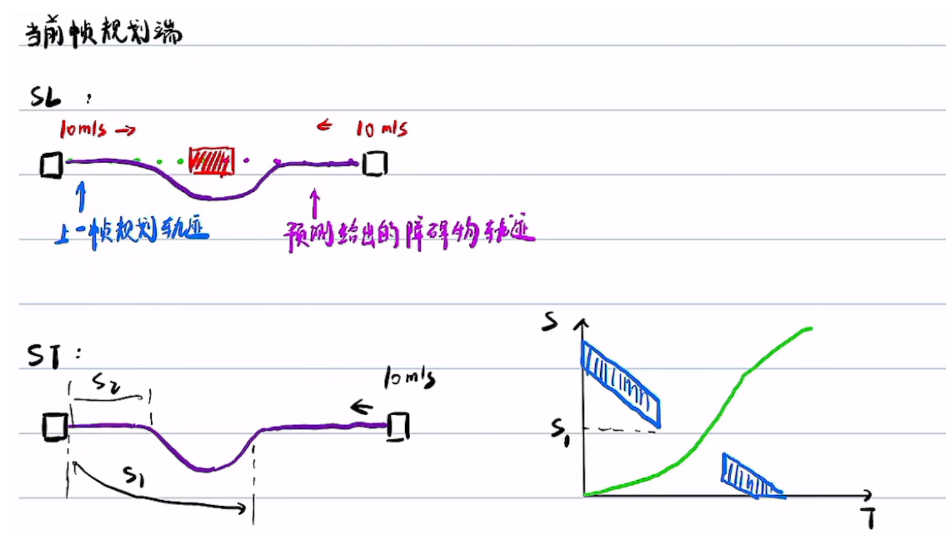 当前帧规划端
SL：
10m/s →
← 10m/s
上一帧规划轨迹
预测给出的障碍物轨迹
ST：
S2
10m/s
←
S1
S
S1
T